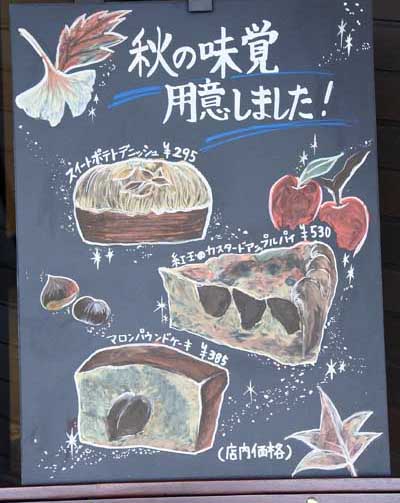 秋の味覚
用意しました！
スイートポテトデニッシュ ¥295
紅玉のカスタードアップルパイ ¥530
マロンパウンドケーキ ¥385
(店内価格)